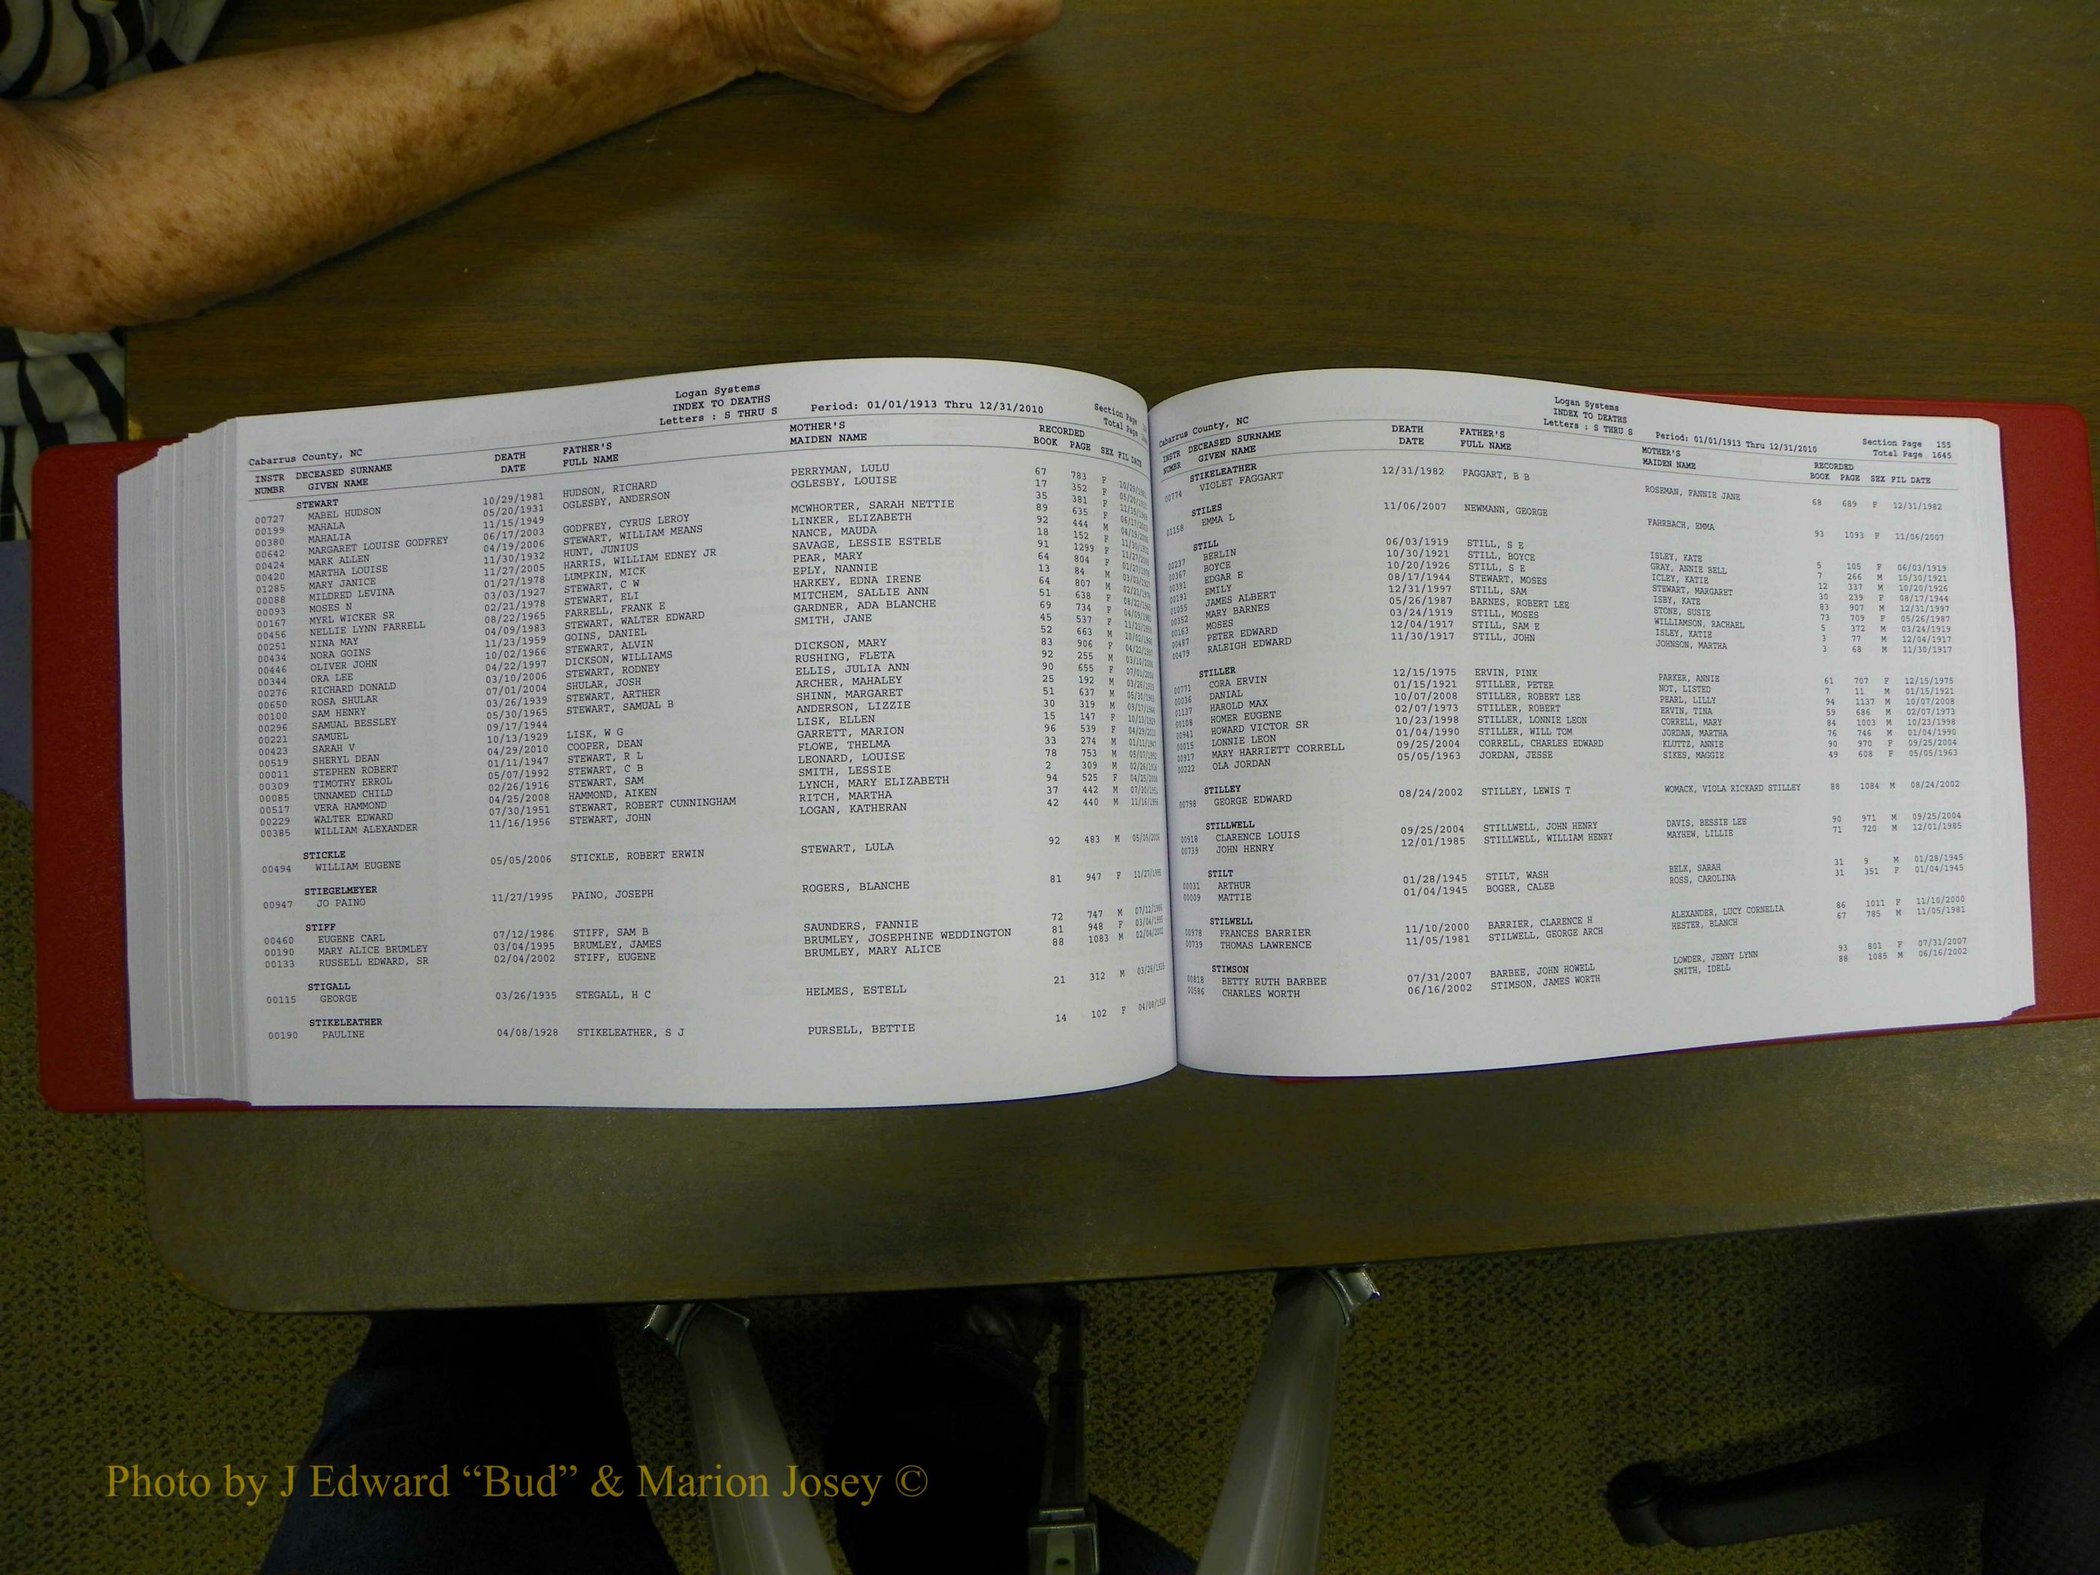 Logan Systems
INDEX TO DEATHS
Cabarrus County, NC Letters : S THRU S Period: 01/01/1913 Thru 12/31/2010 Section Page
Total Page
INSTR DECEASED SURNAME DEATH FATHER'S MOTHER'S RECORDED
NUMBR GIVEN NAME DATE FULL NAME MAIDEN NAME BOOK PAGE SEX FIL DATE
STEWART
00727 MABEL HUDSON 10/29/1981 HUDSON, RICHARD PERRYMAN, LULU 67 783 F 10/29/1981
00199 MAHALA 05/20/1931 OGLESBY, ANDERSON OGLESBY, LOUISE 17 352 F 05/20/1931
00380 MAHALIA 11/15/1949 35 381 F 11/15/1949
00642 MARGARET LOUISE GODFREY 06/17/2003 GODFREY, CYRUS LEROY MCWHORTER, SARAH NETTIE 89 635 F 06/17/2003
00424 MARK ALLEN 04/19/2006 STEWART, WILLIAM MEANS LINKER, ELIZABETH 92 444 M 04/19/2006
00420 MARTHA LOUISE 11/30/1932 HUNT, JUNIUS NANCE, MAUDA 18 152 F 11/30/1932
01285 MARY JANICE 11/27/2005 HARRIS, WILLIAM EDNEY JR SAVAGE, LESSIE ESTELE 91 1299 F 11/27/2005
00088 MILDRED LEVINA 01/27/1978 LUMPKIN, MICK PEAR, MARY 64 804 F 01/27/1978
00093 MOSES N 03/03/1927 STEWART, C W EPLY, NANNIE 13 84 M 03/03/1927
00167 MYRL WICKER SR 02/21/1978 STEWART, ELI HARKEY, EDNA IRENE 64 807 M 02/21/1978
00456 NELLIE LYNN FARRELL 08/22/1965 FARRELL, FRANK E MITCHEM, SALLIE ANN 51 638 F 08/22/1965
00251 NINA MAY 04/09/1983 STEWART, WALTER EDWARD GARDNER, ADA BLANCHE 69 734 F 04/09/1983
00434 NORA GOINS 11/23/1959 GOINS, DANIEL SMITH, JANE 45 537 F 11/23/1959
00446 OLIVER JOHN 10/02/1966 STEWART, ALVIN 52 663 M 10/02/1966
00344 ORA LEE 04/22/1997 DICKSON, WILLIAMS DICKSON, MARY 83 906 F 04/22/1997
00276 RICHARD DONALD 03/10/2006 STEWART, RODNEY RUSHING, FLETA 92 255 M 03/10/2006
00650 ROSA SHULAR 07/01/2004 SHULAR, JOSH ELLIS, JULIA ANN 90 655 F 07/01/2004
00100 SAM HENRY 03/26/1939 STEWART, ARTHER ARCHER, MAHALEY 25 192 M 03/26/1939
00296 SAMUAL BESSLEY 05/30/1965 STEWART, SAMUAL B SHINN, MARGARET 51 637 M 05/30/1965
00221 SAMUEL 09/17/1944 ANDERSON, LIZZIE 30 319 M 09/17/1944
00423 SARAH V 10/13/1929 LISK, W G LISK, ELLEN 15 147 F 10/13/1929
00519 SHERYL DEAN 04/29/2010 COOPER, DEAN GARRETT, MARION 96 539 F 04/29/2010
00011 STEPHEN ROBERT 01/11/1947 STEWART, R L FLOWE, THELMA 33 274 M 01/11/1947
00309 TIMOTHY ERROL 05/07/1992 STEWART, C B LEONARD, LOUISE 78 753 M 05/07/1992
00085 UNNAMED CHILD 02/26/1916 STEWART, SAM SMITH, LESSIE 2 309 M 02/26/1916
00517 VERA HAMMOND 04/25/2008 HAMMOND, AIKEN LYNCH, MARY ELIZABETH 94 525 F 04/25/2008
00229 WALTER EDWARD 07/30/1951 STEWART, ROBERT CUNNINGHAM RITCH, MARTHA 37 442 M 07/30/1951
00385 WILLIAM ALEXANDER 11/16/1956 STEWART, JOHN LOGAN, KATHERAN 42 440 M 11/16/1956
STICKLE
00494 WILLIAM EUGENE 05/05/2006 STICKLE, ROBERT ERWIN STEWART, LULA 92 483 M 05/05/2006
STIEGELMEYER
00947 JO PAINO 11/27/1995 PAINO, JOSEPH ROGERS, BLANCHE 81 947 F 11/27/1995
STIFF
00460 EUGENE CARL 07/12/1986 STIFF, SAM B SAUNDERS, FANNIE 72 747 M 07/12/1986
00190 MARY ALICE BRUMLEY 03/04/1995 BRUMLEY, JAMES BRUMLEY, JOSEPHINE WEDDINGTON 81 948 F 03/04/1995
00133 RUSSELL EDWARD, SR 02/04/2002 STIFF, EUGENE BRUMLEY, MARY ALICE 88 1083 M 02/04/2002
STIGALL
00115 GEORGE 03/26/1935 STEGALL, H C HELMES, ESTELL 21 312 M 03/26/1935
STIKELEATHER
00190 PAULINE 04/08/1928 STIKELEATHER, S J PURSELL, BETTIE 14 102 F 04/08/1928
Logan Systems
INDEX TO DEATHS
Cabarrus County, NC Letters : S THRU S Period: 01/01/1913 Thru 12/31/2010 Section Page 155
Total Page 1645
INSTR DECEASED SURNAME DEATH FATHER'S MOTHER'S RECORDED
NUMBR GIVEN NAME DATE FULL NAME MAIDEN NAME BOOK PAGE SEX FIL DATE
STIKELEATHER
00774 VIOLET FAGGART 12/31/1982 FAGGART, B B ROSEMAN, FANNIE JANE 68 689 F 12/31/1982
STILES
01158 EMMA L 11/06/2007 NEWMANN, GEORGE FAHRBACH, EMMA 93 1093 F 11/06/2007
STILL
00237 BERLIN 06/03/1919 STILL, S E ISLEY, KATE 5 105 F 06/03/1919
00367 BOYCE 10/30/1921 STILL, BOYCE GRAY, ANNIE BELL 7 266 M 10/30/1921
00391 EDGAR E 10/20/1926 STILL, S E ICLEY, KATIE 12 337 M 10/20/1926
00191 EMILY 08/17/1944 STEWART, MOSES STEWART, MARGARET 30 239 F 08/17/1944
01055 JAMES ALBERT 12/31/1997 STILL, SAM ISBY, KATE 83 907 M 12/31/1997
00352 MARY BARNES 05/26/1987 BARNES, ROBERT LEE STONE, SUSIE 73 709 F 05/26/1987
00163 MOSES 03/24/1919 STILL, MOSES WILLIAMSON, RACHAEL 5 372 M 03/24/1919
00487 PETER EDWARD 12/04/1917 STILL, SAM E ISLEY, KATIE 3 77 M 12/04/1917
00479 RALEIGH EDWARD 11/30/1917 STILL, JOHN JOHNSON, MARTHA 3 68 M 11/30/1917
STILLER
00771 CORA ERVIN 12/15/1975 ERVIN, PINK PARKER, ANNIE 61 707 F 12/15/1975
00036 DANIAL 01/15/1921 STILLER, PETER NOT, LISTED 7 11 M 01/15/1921
01137 HAROLD MAX 10/07/2008 STILLER, ROBERT LEE PEARL, LILLY 94 1137 M 10/07/2008
00108 HOMER EUGENE 02/07/1973 STILLER, ROBERT ERVIN, TINA 59 686 M 02/07/1973
00941 HOWARD VICTOR SR 10/23/1998 STILLER, LONNIE LEON CORRELL, MARY 84 1003 M 10/23/1998
00015 LONNIE LEON 01/04/1990 STILLER, WILL TOM JORDAN, MARTHA 76 746 M 01/04/1990
00917 MARY HARRIETT CORRELL 09/25/2004 CORRELL, CHARLES EDWARD KLUTTZ, ANNIE 90 970 F 09/25/2004
00222 OLA JORDAN 05/05/1963 JORDAN, JESSE SIKES, MAGGIE 49 608 F 05/05/1963
STILLEY
00798 GEORGE EDWARD 08/24/2002 STILLEY, LEWIS T WOMACK, VIOLA RICKARD STILLEY 88 1084 M 08/24/2002
STILLWELL
00918 CLARENCE LOUIS 09/25/2004 STILLWELL, JOHN HENRY DAVIS, BESSIE LEE 90 971 M 09/25/2004
00739 JOHN HENRY 12/01/1985 STILLWELL, WILLIAM HENRY MAYHEW, LILLIE 71 720 M 12/01/1985
STILT
00031 ARTHUR 01/28/1945 STILT, WASH BELK, SARAH 31 9 M 01/28/1945
00009 MATTIE 01/04/1945 BOGER, CALEB ROSS, CAROLINA 31 351 F 01/04/1945
STILWELL
00978 FRANCES BARRIER 11/10/2000 BARRIER, CLARENCE H ALEXANDER, LUCY CORNELIA 86 1011 F 11/10/2000
00739 THOMAS LAWRENCE 11/05/1981 STILWELL, GEORGE ARCH HESTER, BLANCH 67 785 M 11/05/1981
STIMSON
00818 BETTY RUTH BARBEE 07/31/2007 BARBEE, JOHN HOWELL LOWDER, JENNY LYNN 93 801 F 07/31/2007
00586 CHARLES WORTH 06/16/2002 STIMSON, JAMES WORTH SMITH, IDELL 88 1085 M 06/16/2002
Photo by J Edward “Bud” & Marion Josey ©